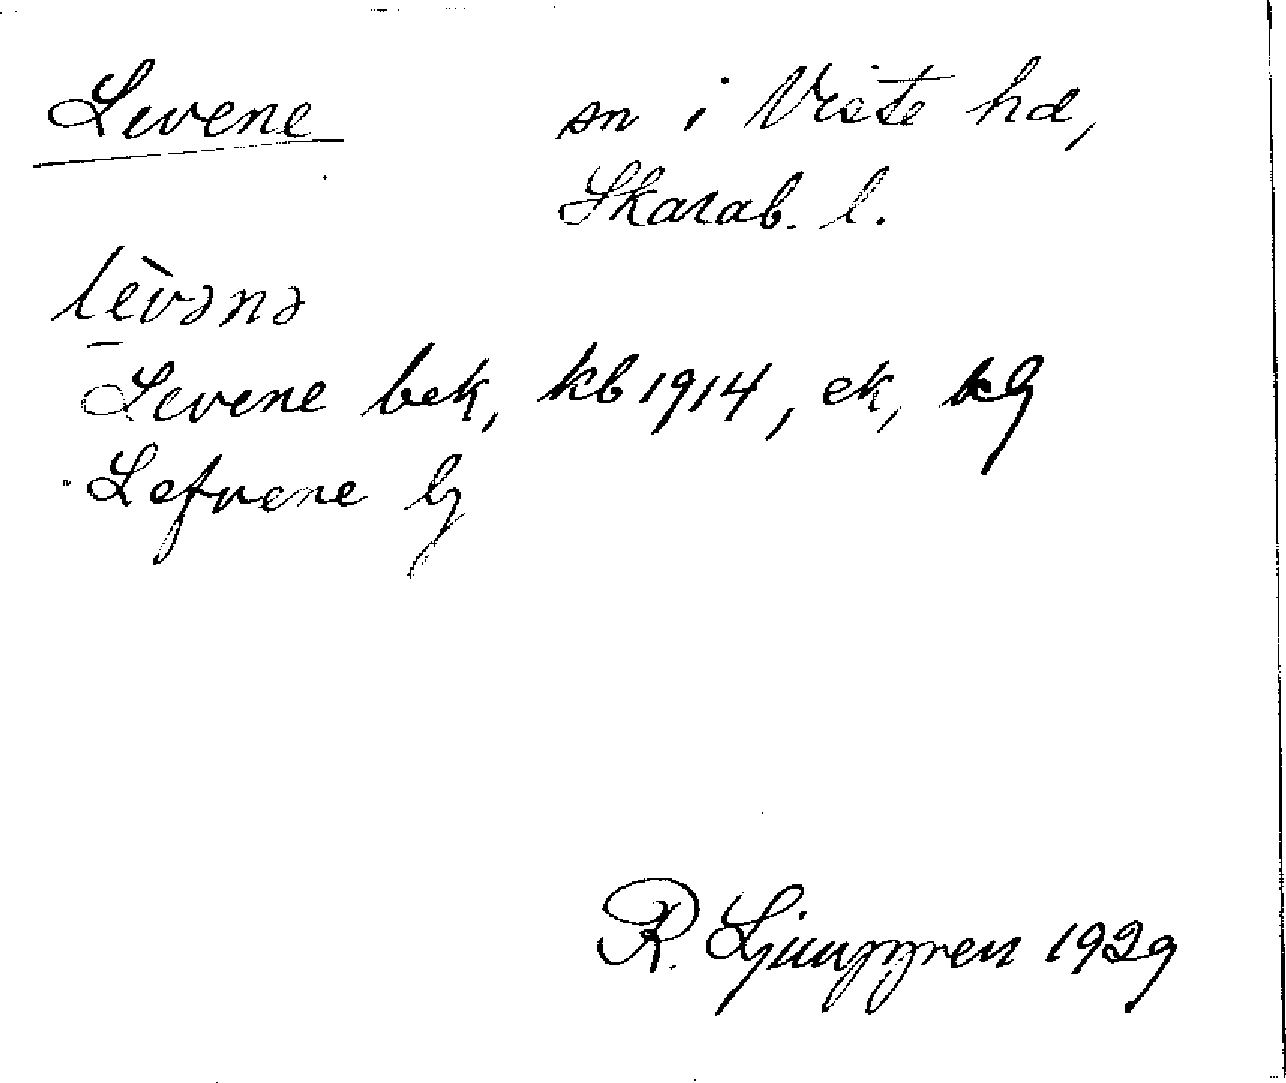 Levene sn i Viste hd,
Skarab. l.
lèvənə
Levene bek, kb 1914, ek, kg
Lefvene
R. Ljunggren 1929